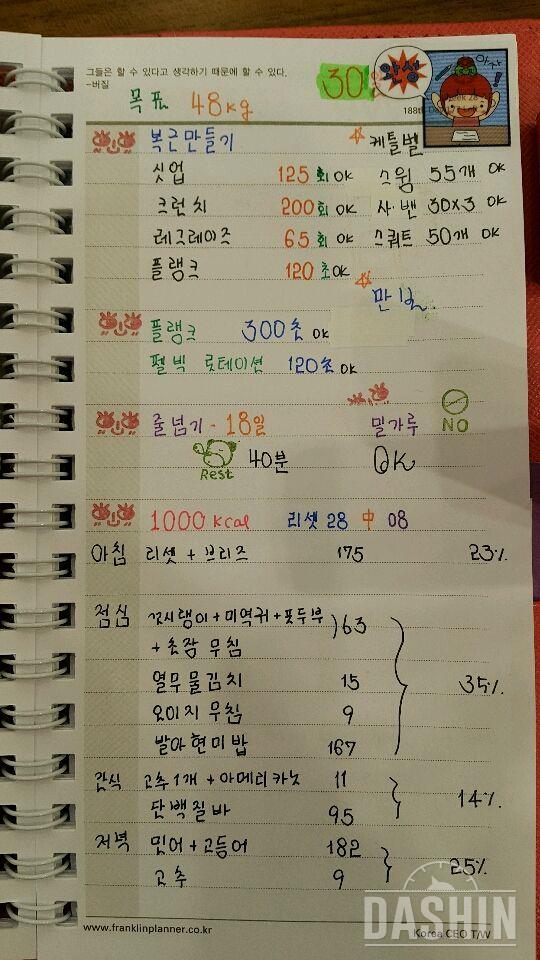 그들은 할 수 있다고 생각하기 때문에 할 수 있다.
-버질
30일 완성 아자!
목표 48kg
188th
복근만들기 ☆ 케틀벨
싯업 125회 OK 스윙 55개 OK
크런치 200회 OK 사·밴 30x3 OK
레그레이즈 65회 OK 스쿼트 50개 OK
플랭크 120초 OK
플랭크 300초 OK
펠빅 로테이션 120초 OK
줄넘기 - 18일 밀가루 NO
Rest 40분 OK
1000 kcal 리셋 28 中 08
아침 리셋 + 브리즈 175 23%
점심 꼬시댕이 + 미역귀 + 폿두부
+ 초장 무침 )63
열무물김치 15 35%
오이지 무침 9
발아현미밥 167
간식 고추1개 + 아메리카노 11
단백질바 95 14%
저녁 민어 + 고등어 182
고추 9 25%
www.franklinplanner.co.kr
Korea CEO T/W
DASHIN